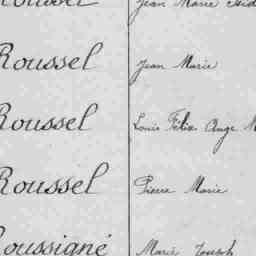 Roussel Jean Marie
Roussel Jean Marie
Roussel Louis Félix Ange
Roussel Pierre Marie
Roussigné Marie Joseph